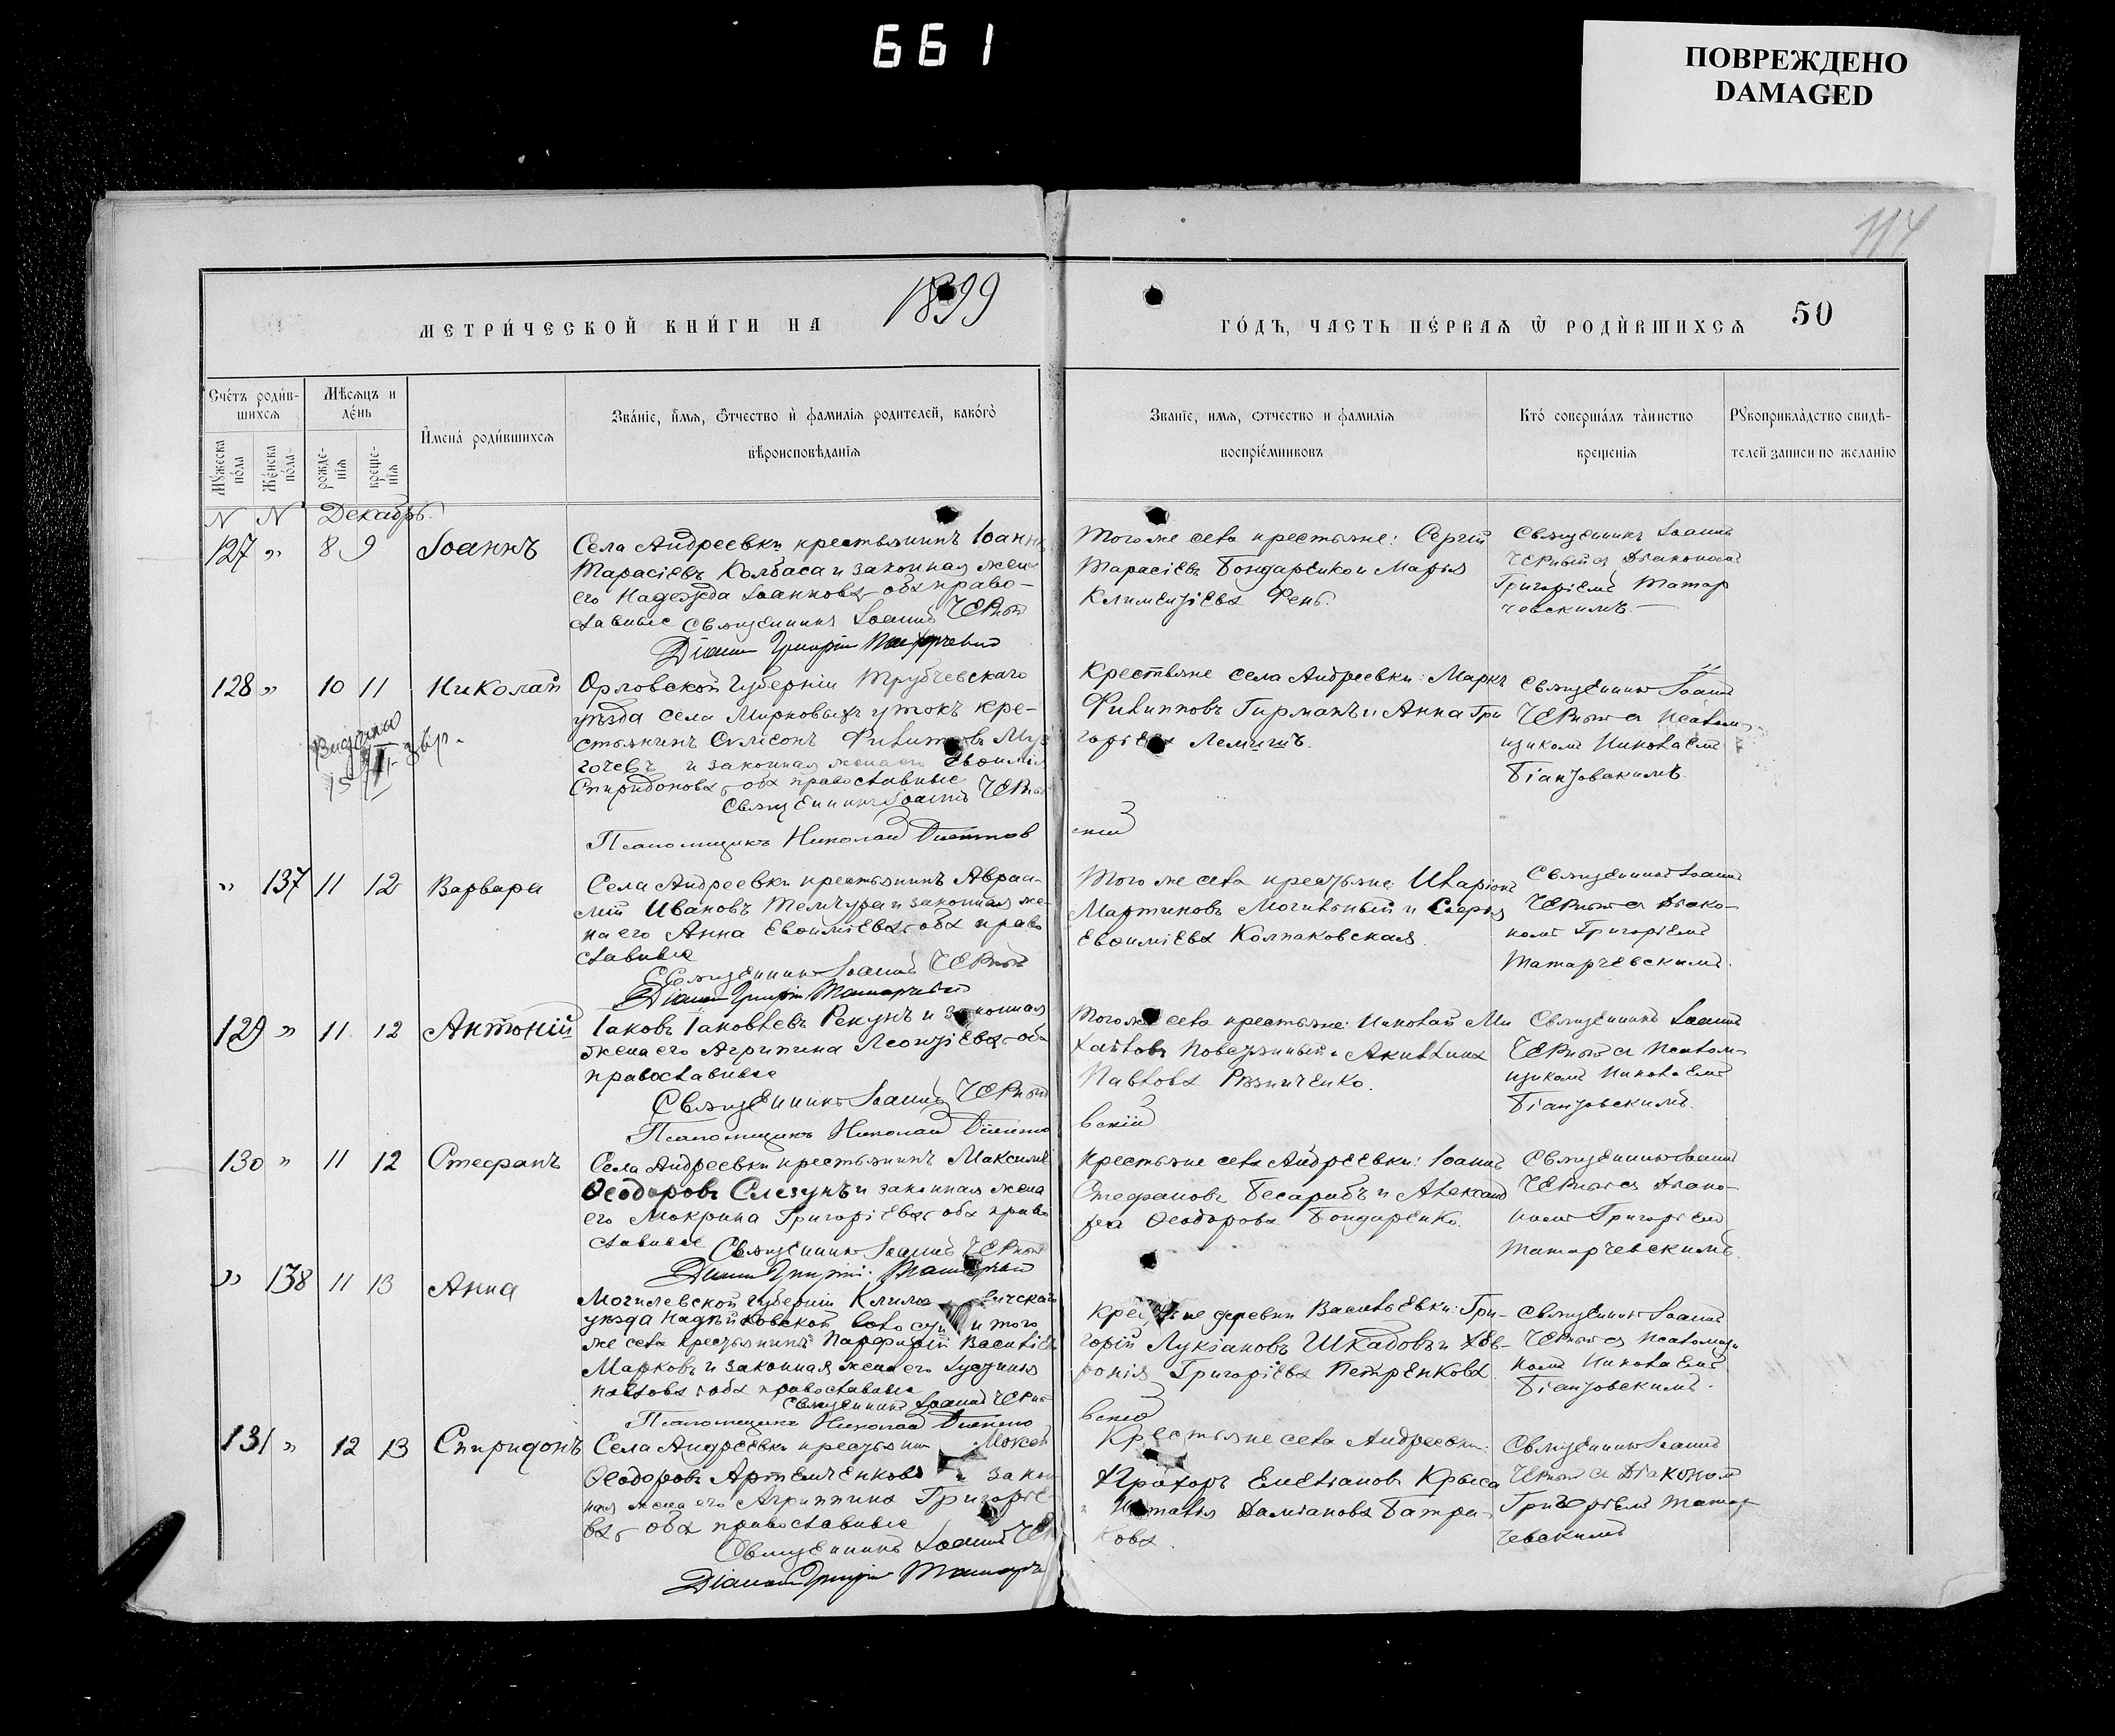 661
ПОВРЕЖДЕНО
DAMAGED
114
МЕТРИ́ЧЕСКОЙ КНИ́ГИ НА 1899
ГО́ДЪ, ЧАСТЬ ПЕ́РВАѦ Ѿ РОДИ́ВШИХСѦ 50
Сче́тъ роди́в-
шихсѧ
Мѣ́сѧцъ и
де́нь
И҆мена́ роди́вшихсѧ
Зва́нїе, и҆́мѧ, ѻ҆́тчество и҆ фами́лїѧ роди́телей, како́гѡ
вѣроисповѣ́данїѧ
Зва́нїе, имѧ, ѻтчество и фамилїѧ
воспрїе́мниковъ
Кто́ соверша́лъ та́инство
креще́нїѧ
Рꙋкоприкла́дство свидѣ́-
телей записи по жела́нїю
Мꙋ́жеска
по́ла
Же́нска
по́ла
рожде-
нїѧ
креще-
нїѧ
N N Декабрь.
127 " 8 9 Іоаннъ
Села Андреевки крестьянинъ Іоаннъ
Тарасіевъ Колбаса и законная жена
его Надежда Іоаннова, оба право-
славные Священникъ Іоаннъ Черный
Діаконъ Григорій Татарчевскій
Того же села крестьяне: Сергій
Тарасіевъ Бондаренко и Марья
Климентіева Фень.
Священникъ Іоаннъ
Черный съ Діакономъ
Григоріемъ Татар
чевскимъ
128 " 10 11 Николай
Выдано
Орловской губерніи Трубчевскаго
уѣзда села Мирковыхъ утокъ кре-
стьянинъ Симеонъ Филипповъ
и законная жена его Евфимія
Спиридонова, оба православные
Священникъ Іоаннъ Черный
Псаломщикъ Николай
скій
Крестьяне села Андреевки: Маркъ
Филипповъ Гирманъ и Анна Гри
горьева Лемишъ.
Священникъ Іоаннъ
Черный съ Псалом-
щикомъ Николаемъ
" 137 11 12 Варвара
Села Андреевки крестьянинъ Авраа-
мій Ивановъ Темчура и законная же-
на его Анна Евфиміева, оба право
славные
Священникъ Іоаннъ Черный
Діаконъ Григорій Татарчевскій
Того же села крестьяне: Иларіонъ
Мартиновъ Могильный и
Евфиміева Колпаковская
Священникъ Іоаннъ
Черный съ Діако-
номъ Григоріемъ
Татарчевскимъ.
129 " 11 12 Антоній
Іаковъ Іаковлевъ Рекунъ и законная
жена его Агрипина Леонтіева, оба
православные
Священникъ Іоаннъ Черный
Псаломщикъ Николай
вскій
Того же села крестьяне: Николай Ми
хайловъ и Акилина
Павлова Рязниченко.
Священникъ Іоаннъ
Черный съ Псалом-
щикомъ Николаемъ
130 " 11 12 Стефанъ
Села Андреевки крестьянинъ Максимъ
Ѳеодоровъ Слезунъ и законная жена
его Мокрина Григоріева, оба право
славные Священникъ Іоаннъ Черный
Діаконъ Григорій Татарчевскій
Крестьяне села Андреевки: Іоаннъ
Стефановъ Бесарабъ и Александ
ра Ѳеодорова Бондаренко.
Священникъ Іоаннъ
Черный съ Діако-
номъ Григоріемъ
Татарчевскимъ.
" 138 11 13 Анна
Могилевской губерніи
уѣзда и того
же села крестьянинъ Парфирій Василіевъ
Марковъ и законная жена его Іустинія
Павлова, оба православные
Священникъ Іоаннъ Черный
Псаломщикъ Николай
вскій
деревни Васильевки: Гри-
горій Лукіановъ Шкадовъ и Хев-
ронія Григоріева Петренкова
Священникъ Іоаннъ
Черный съ Псаломщи
комъ Николаемъ
131 " 12 13 Спиридонъ
Села Андреевки Мокей
Ѳеодоровъ Артемченковъ и закон
ная жена его Агриппина Григоріе-
ва, оба православные
Священникъ Іоаннъ
Діаконъ Григорій
Крестьяне села Андреевки:
Прохоръ Емеліановъ Крыса
и Наталія Даміанова Батра-
кова
Священникъ Іоаннъ
Черный съ Діакономъ
Григоріемъ Татар-
чевскимъ